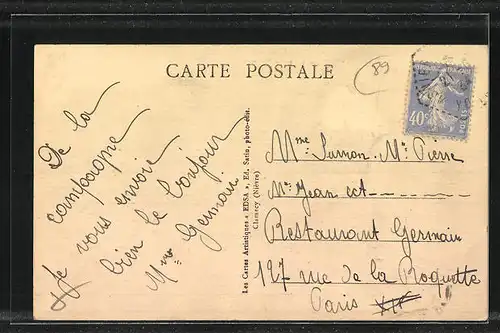 89
CARTE POSTALE
40c
De la
campagne
Je vous envoie
bien le bonjour
Mme Germain
Les Cartes Artistiques « EDSA », Ed. Satie, photo-édit.
Clamecy (Nièvre)
Mme Surron. Mr Pierre
Mr Jean ect
Restaurant Germain
127 rue de la Roquette
Paris